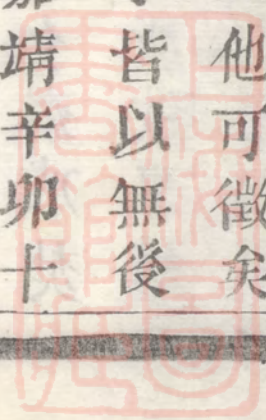 他可徵矣
皆以無後
靖辛卯十